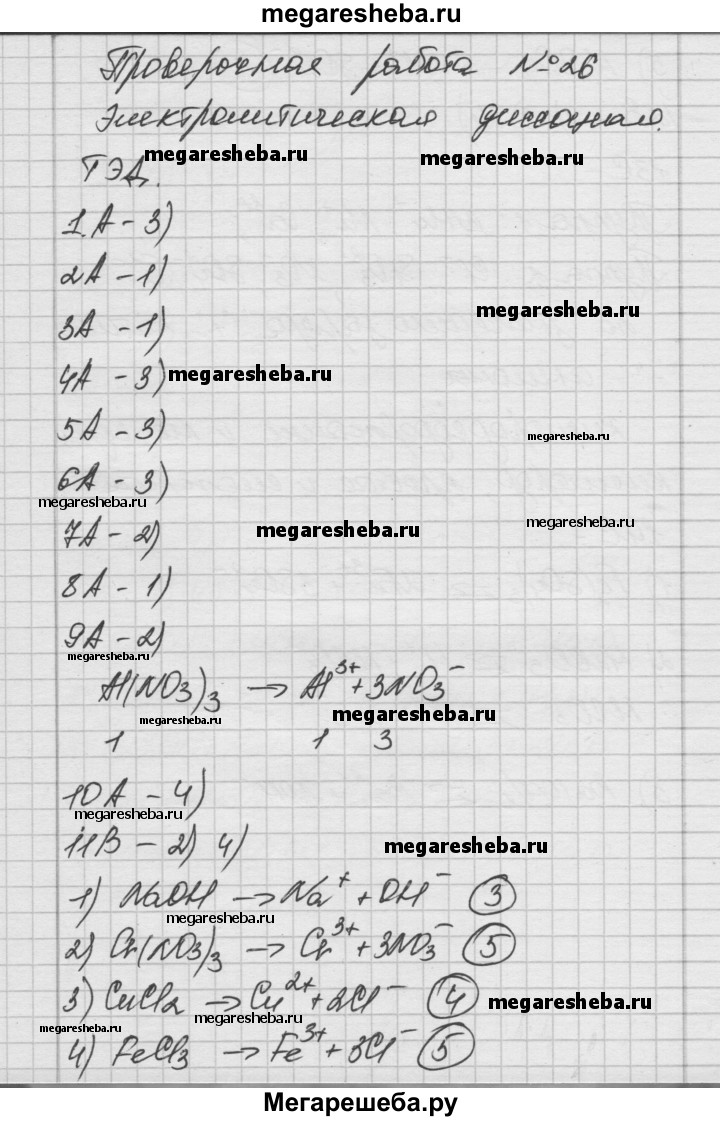 megaresheba.ru
Проверочная работа № 26
Электролитическая диссоциация.
megaresheba.ru
megaresheba.ru
ТЭД.
1.А - 3)
2А - 1)
megaresheba.ru
3А - 1)
4А - 3)
megaresheba.ru
5А - 3)
megaresheba.ru
6А - 3)
megaresheba.ru
7А - 2)
megaresheba.ru
megaresheba.ru
8А - 1)
9А - 2)
megaresheba.ru
Al(NO3)3 → Al³⁺ + 3NO3⁻
megaresheba.ru
megaresheba.ru
1 1 3
10А - 4)
megaresheba.ru
11В - 2) 4)
megaresheba.ru
1) NaOH → Na⁺ + OH⁻ (3)
megaresheba.ru
2) Cr(NO3)3 → Cr³⁺ + 3NO3⁻ (5)
3) CuCl2 → Cu²⁺ + 2Cl⁻ (4)
megaresheba.ru
megaresheba.ru
megaresheba.ru
4) FeCl3 → Fe³⁺ + 3Cl⁻ (5)
Мегарешеба.ру